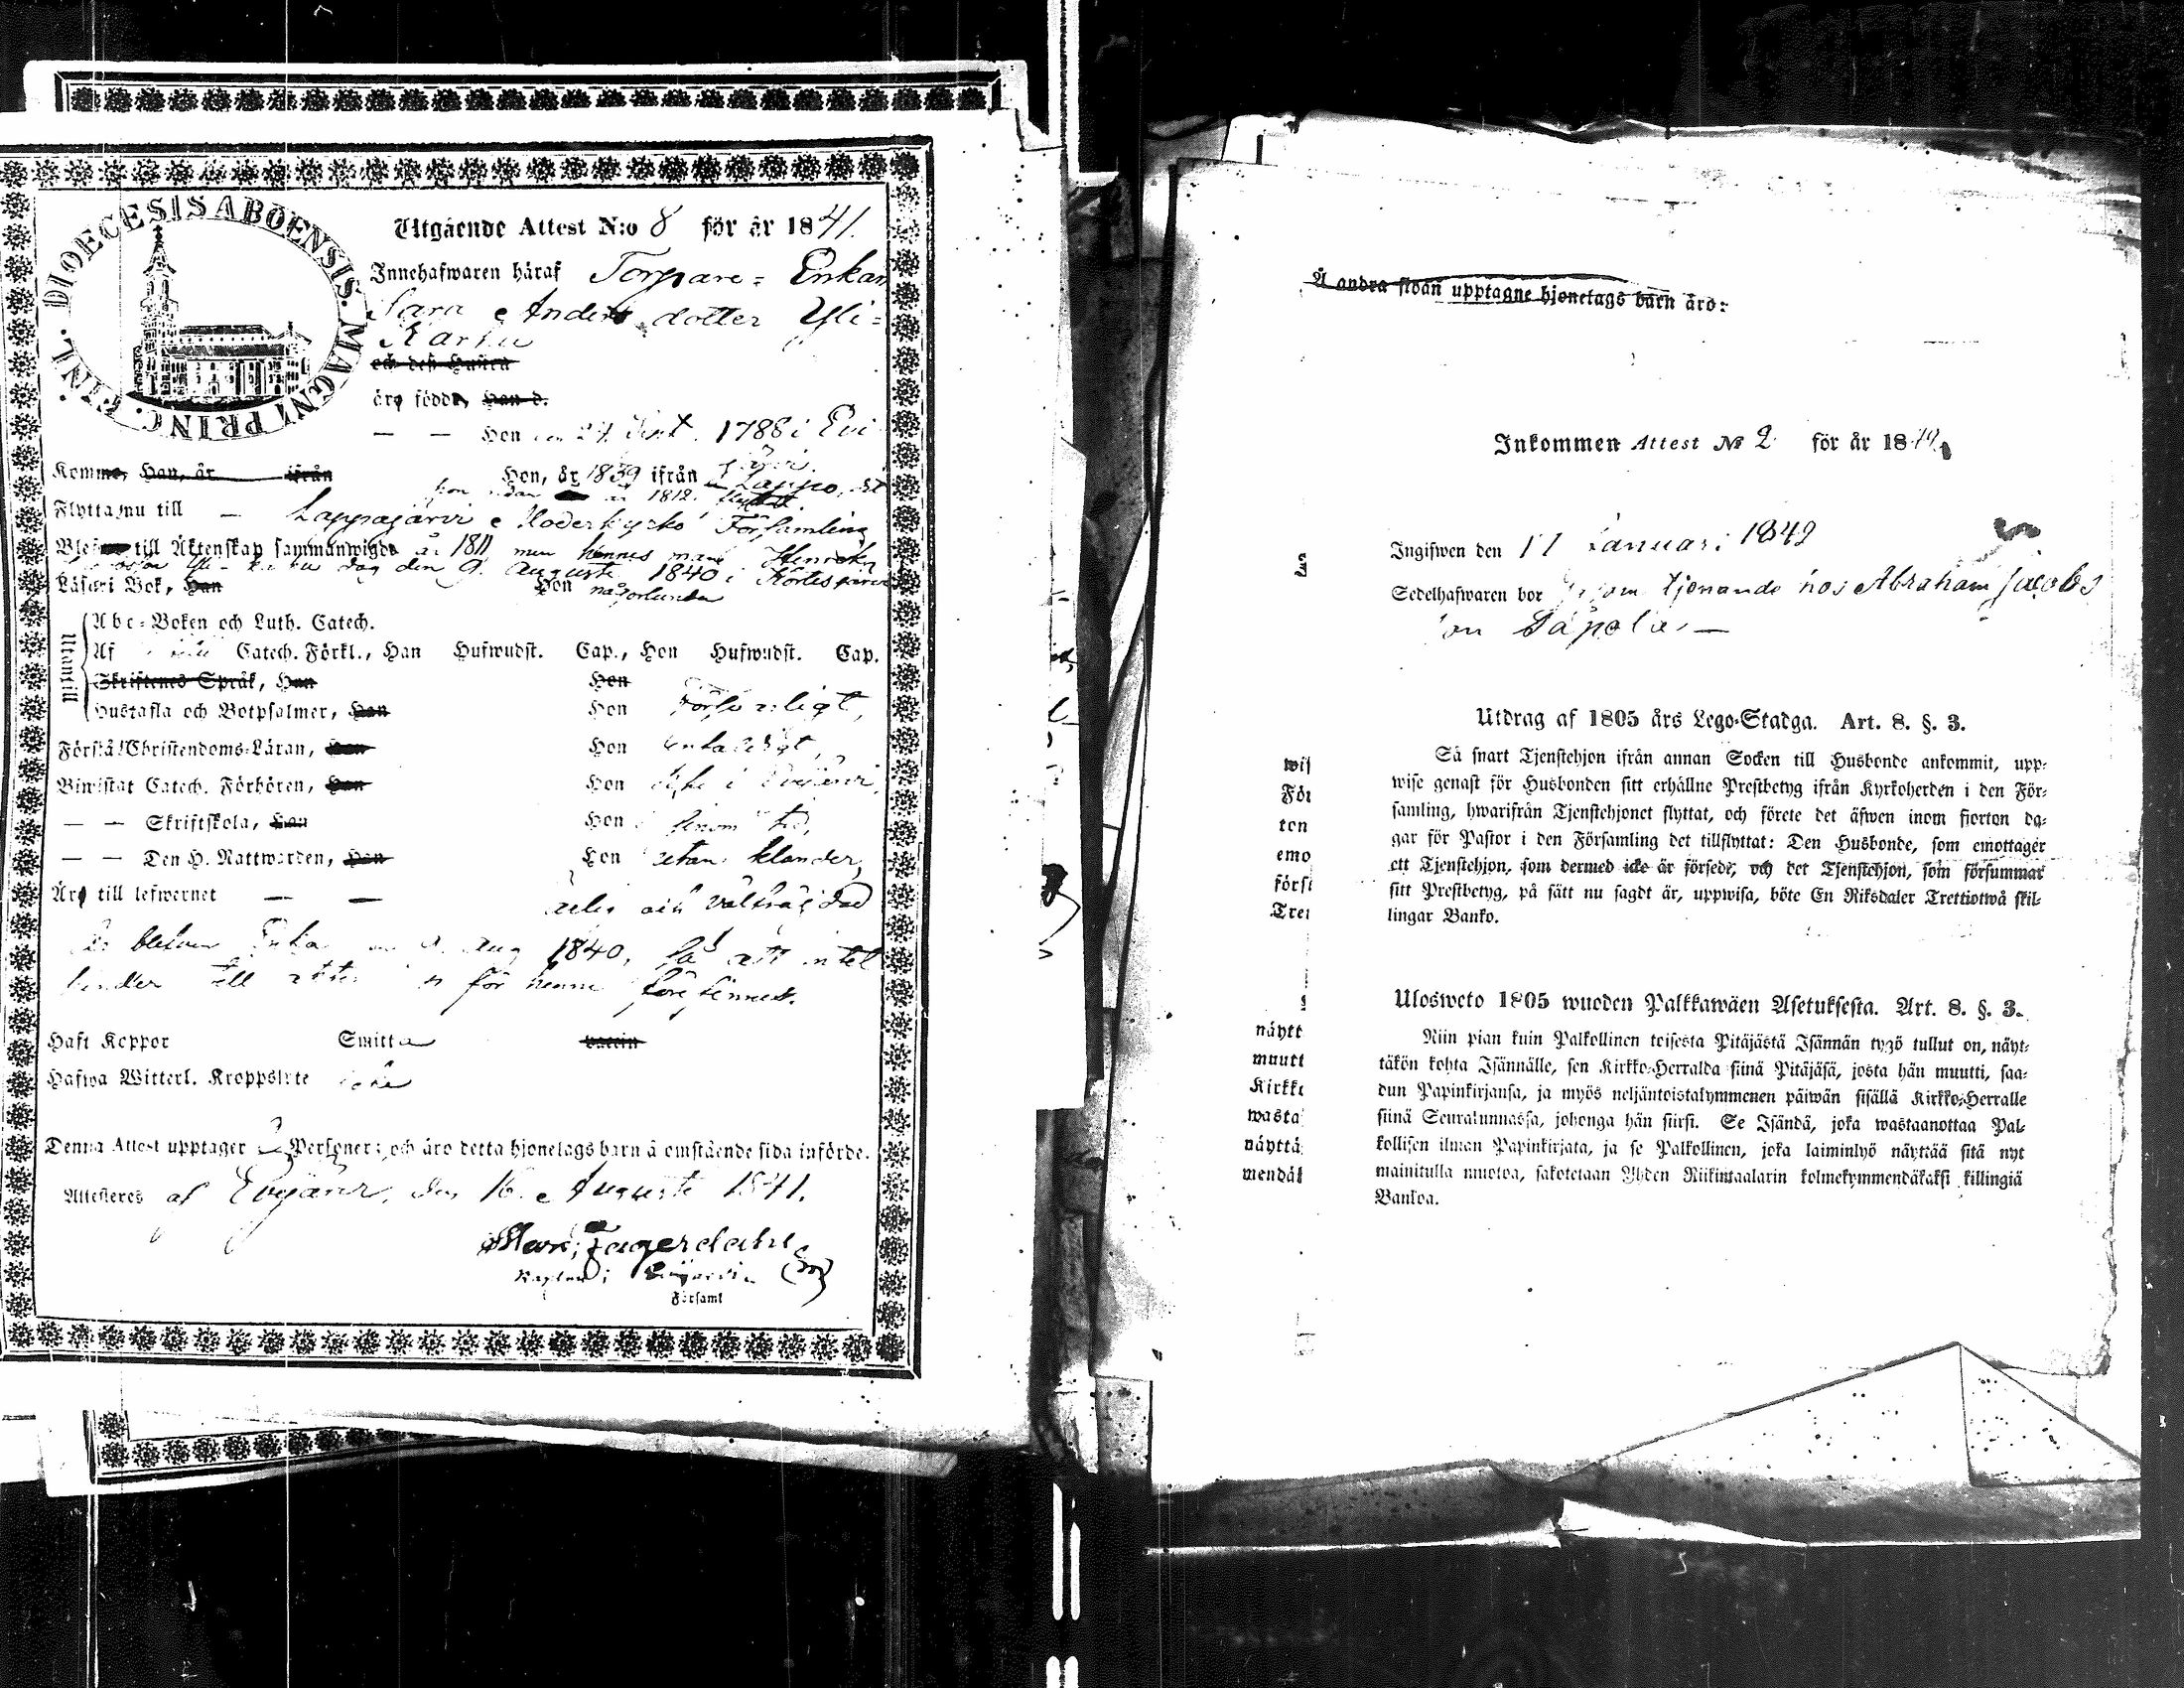 DIOECESIS ABOENSIS. MAGNI PRINC. FINL.
Utgående Attest N:o 8 för år 1841.
Innehafwaren häraf Torpare= Enkan
Sara Anders dotter Yli=
Karhu
och deß Hustru
äro födde, Han d.
— — Hon 1788 i Evi
järvi.
Komme, Han, år ifrån Hon, år 1839 ifrån Lappo,
år 1812
Flytta nu till — Lappajärvi Moderkyrko Församling
Blefwe till Äktenskap sammanwigde år 1811 men hennes man Henrik
dog den 9. Augusti 1840 i Kortesjärvi
Läsa i Bok, Han Hon någorlunda
Utantill
Abc-Boken och Luth. Catech.
Af Catech. Förkl., Han Hufwudst. Cap., Hon Hufwudst. Cap.
Skriftenes Språk, Han Hon
Hustafla och Botpsalmer, Han Hon Försvarligt,
Förstå Christendoms-Läran, Han Hon enfaldigt,
Biwistat Catech. Förhören, Han Hon i Evijärvi,
— — Skriftskola, Han Hon i sinom tid,
— — Den H. Nattwarden, Han Hon utan klander,
Äro till lefwernet — — ärlig och välfräjdad
blefven Enka 9. Aug 1840, så att intet
hinder till för henne förefinnes.
Haft Koppor Smitta vaccin
Hafwa Witterl. Kroppslyte icke
Denna Attest upptager Personer; och äro detta hjonelags barn å omstående sida införde.
Attesteres af Evijärvi, den 16. Augusti 1841.
Fagerdahl
Kaplan i Evijärvi
Församl
Å andra sidan upptagne hjonelags barn äro:
Inkommen Attest № 2 för år 1842
Ingifwen den 11 Januari 1842
Sedelhafwaren bor såsom tjenande hos Abraham Jacobs
son Säpolä. —
Utdrag af 1805 års Lego-Stadga. Art. 8. §. 3.
Så snart Tjenstehjon ifrån annan Socken till Husbonde ankommit, upp-
wise genast för Husbonden sitt erhållne Prestbetyg ifrån Kyrkoherden i den För-
samling, hwarifrån Tjenstehjonet flyttat, och förete det äfwen inom fjorton da-
gar för Pastor i den Församling det tillflyttat: Den Husbonde, som emottager
ett Tjenstehjon, som dermed icke är försedt, och det Tjenstehjon, som försummar
sitt Prestbetyg, på sätt nu sagdt är, uppwisa, böte En Riksdaler Trettiotwå skil-
lingar Banko.
Ulosweto 1805 wuoden Palkkawäen Asetuksesta. Art. 8. §. 3.
Niin pian kuin Palkollinen toisesta Pitäjästä Isännän tygö tullut on, näyt-
täkön kohta Isännälle, sen Kirkko-Herralda siinä Pitäjäsä, josta hän muutti, saa-
dun Papinkirjansa, ja myös neljäntoistakymmenen päiwän sisällä Kirkko-Herralle
siinä Seurakunnassa, johonga hän siirsi. Se Isändä, joka wastaanottaa Pal-
kollisen ilman Papinkirjata, ja se Palkollinen, joka laiminlyö näyttää sitä nyt
mainitulla muotoa, sakotetaan Yhden Riikintaalarin kolmekymmendäkaksi killingiä
Bankoa.
wis
För
ton
emo
förs
Tre
näytt
muutt
Kirkko
wasta
näyttä
mendäk